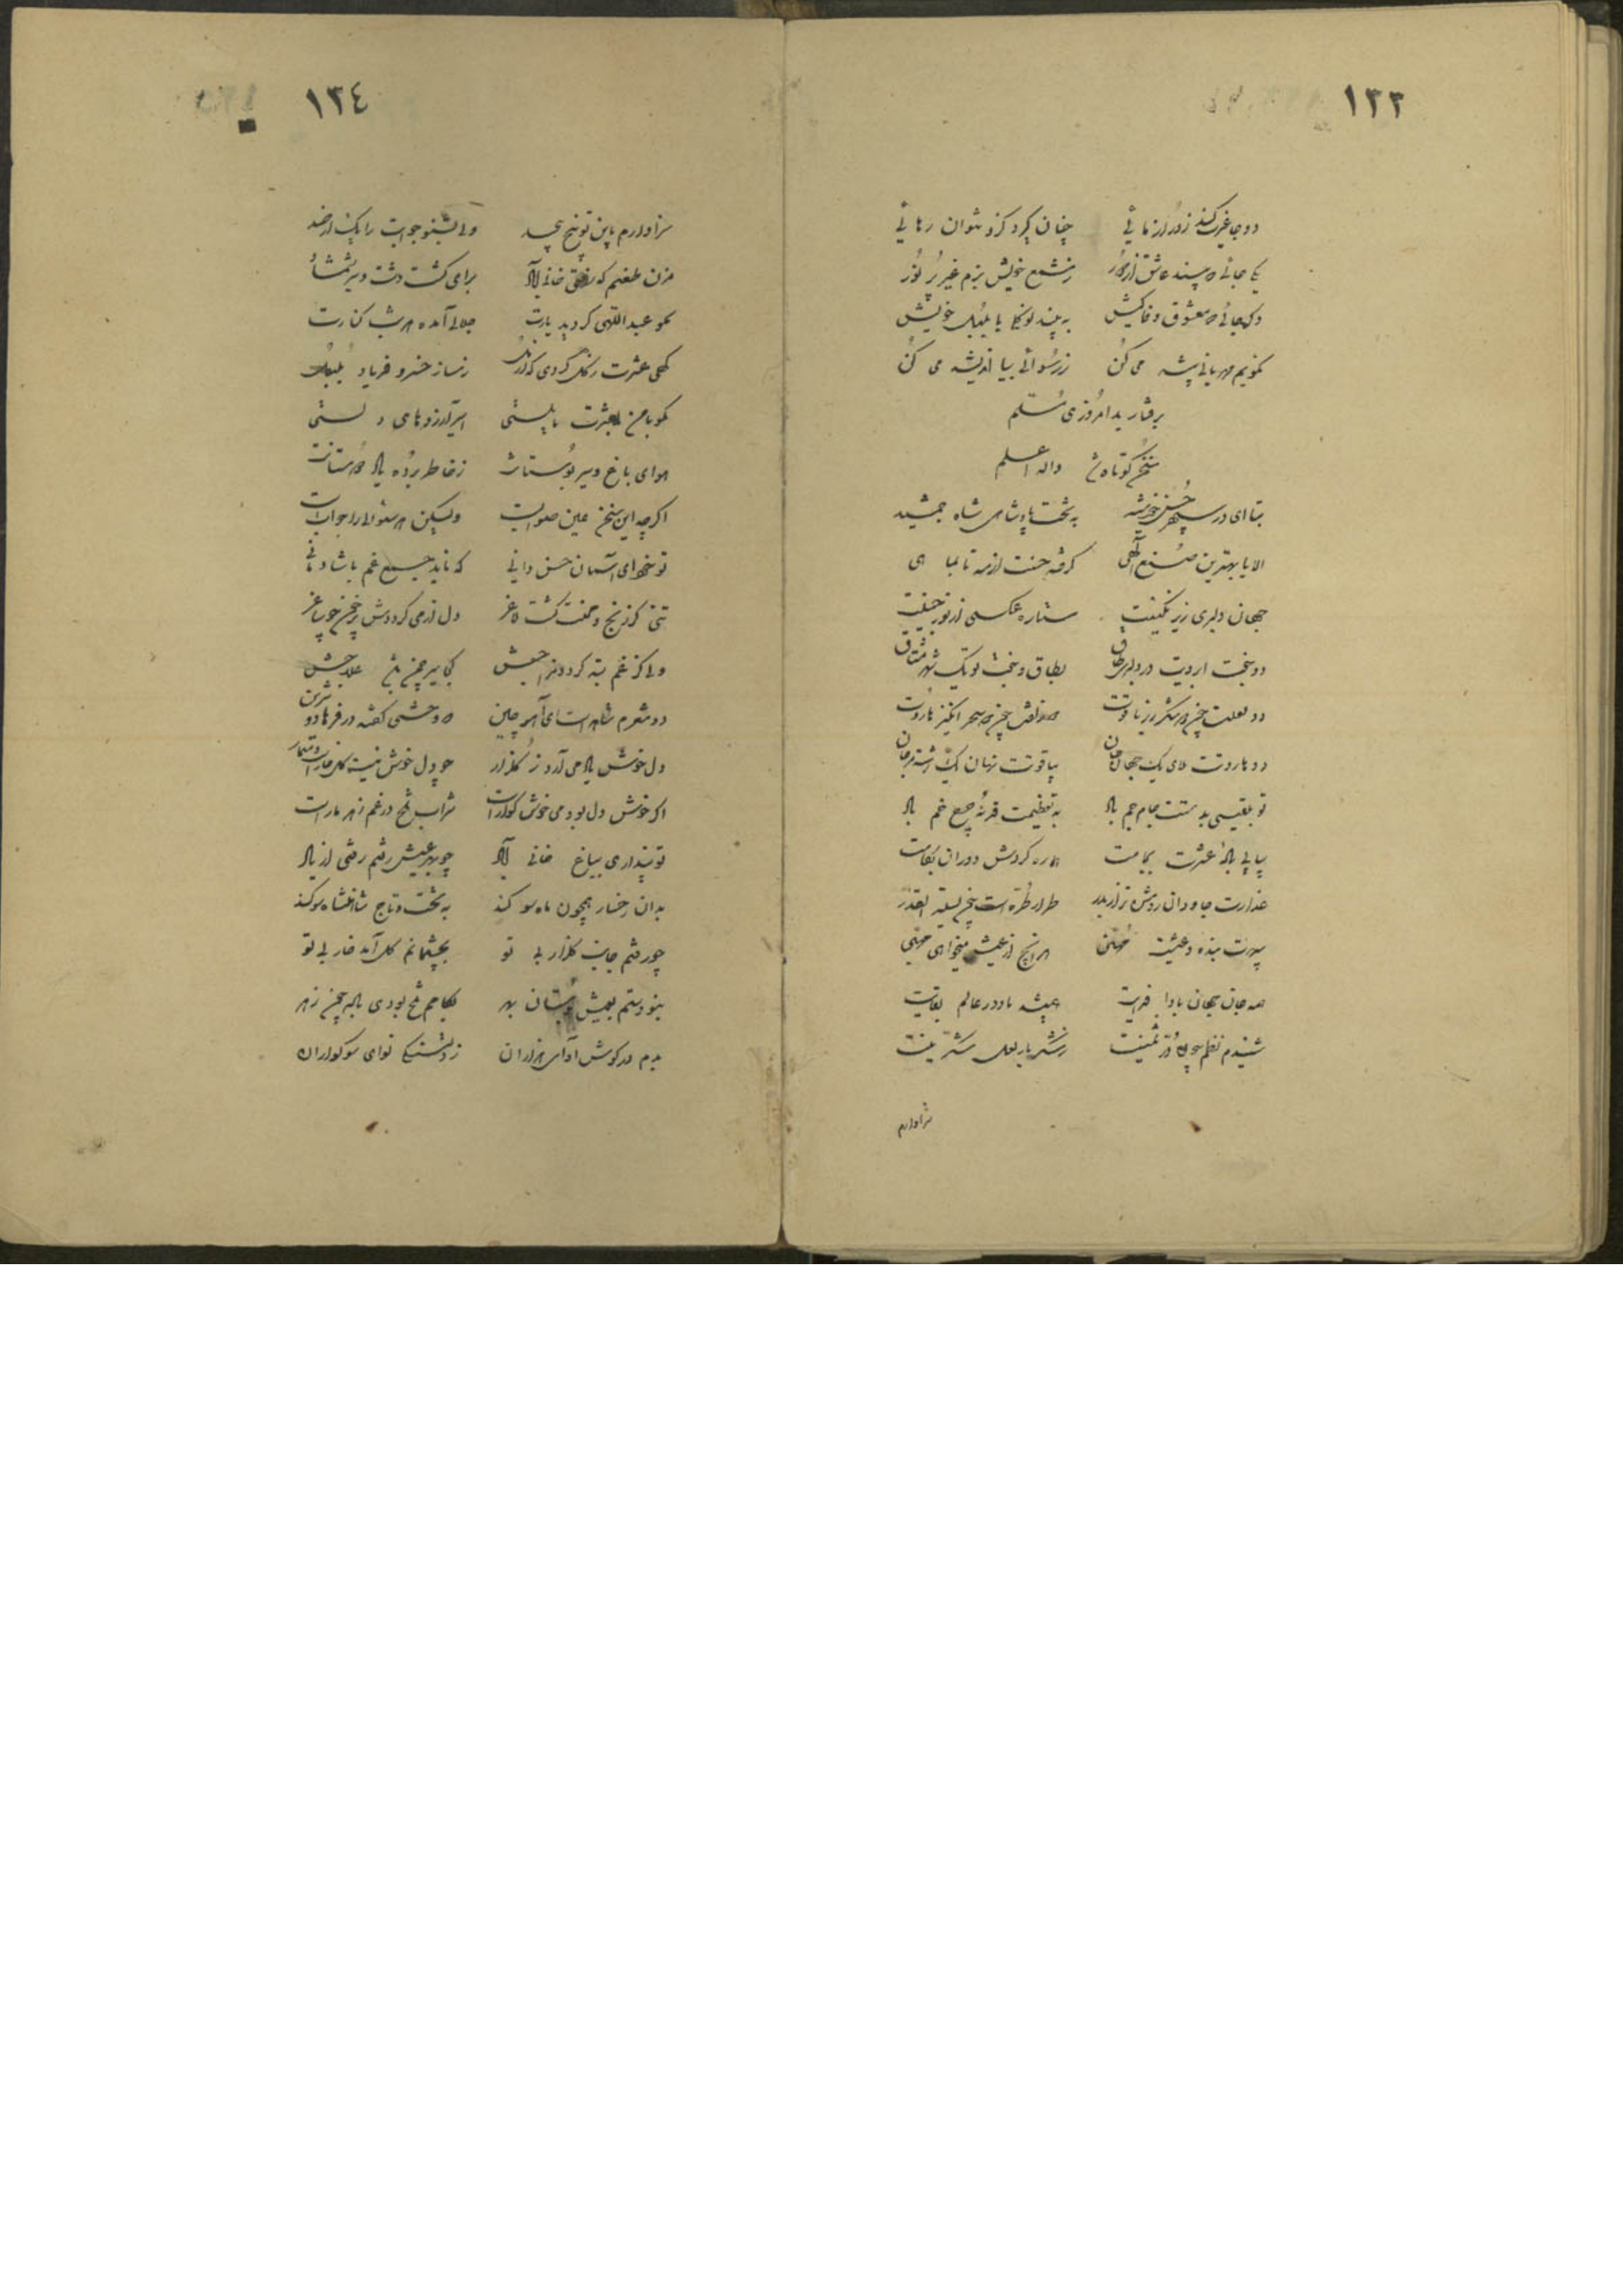 ١٣٣
دو جا غیرت کند زور آزمائی چنان گیرد کزو نتوان رهائی
یکی جائی که بیند عاشق از دور ز شمع خویش بزم غیر پر نور
دگر جائی که معشوق وفاکیش به بیند نوگلی با بلبل خویش
نگویم مهربانی پیشه می کن ز رسوائی بیا اندیشه می کن
برفتار بد امروزی مسلم
سخن کوتاه والله اعلم
بتا ای در سپهر حسن خورشید به تخت پادشاهی شاه جمشید
الا یا بهترین صنع الهی گرفته حسنت از مه تا بماهی
جهان دلبری زیر نگینت ستاره عکسی از نور جبینت
دو جفت ابرویت در دلبری طاق بطاق و جفت تو یک شهر مشتاق
دو لعلت چون شکرریز یاقوت دو زلفت چون سحرانگیز هاروت
دو هاروت بلای یک جهان جان بیاقوت نهان یک رشته مرجان
تو بلقیسی بدستت جام جم باد به تعظیمت قد چرخ خم باد
پیاپی باده عشرت بجامت هماره گردش دوران بکامت
عذارت جاودان روشن تر از بدر طراز طره است چون لیلة القدر
سپهرت بنده و عیشت مهنی هر آنچ از عیش میخواهی مهیی
همه جان جهان بادا فدایت همیشه باد در عالم بقایت
شنیدم نظم همچون در ثمینت ز شکر بار لعل شکرینت
سزاوارم
١٣٤
سزاوارم باین توبیخ بیحد ولی بشنو جوابت را یک از صد
مزن طعنم که رفتی خانی لاله برای گشت دشت و سیر شمشاد
مگو عبداللهی گردید یارت جلالی آمده هر شب کنارت
گهی عشرت ز گل کردی که از مل ز ساز خسرو فریاد بلبل
مگو با من بعشرت یار هستی اسیر آرزوهای دلستی
هوای باغ و سیر بوستانت ز خاطر برده یاد دوستانت
اگر چه این سخن عین صوابست ولیکن هر سئوالی را جوابست
تو خود ای آسمان حسن دانی که ناید جمع غم با شادمانی
تنی کز رنج و محنت گشت لاغر دل از می گرددش پر خون چو ساغر
ولی کز غم تبه گردد مزاجش کجا سیر چمن باشد علاجش
درین شعرم شاهد است ای آهوی چین که وحشی گفته در فرهاد و شیرین
دل خوش یاد می آرد ز گلزار چو دل خوش نیست گل خار است و مسمار
اگر خوش دل بود می خوش گوار است شراب تلخ در غم زهر مار است
تو پنداری بباغ خانی لاله چو بهر عیش رفتم رفتی از یاد
بدان رخسار همچون ماه سوگند به تخت و تاج شاهنشاه سوگند
چو رفتم جانب گلزار بی تو بچشمانم گل آمد خار بی تو
بنودستم بعیش بوستان بهر بکامم تلخ بودی باده چون زهر
بدم در گوش آوای هزاران ز دلتنگی نوای سوگواران